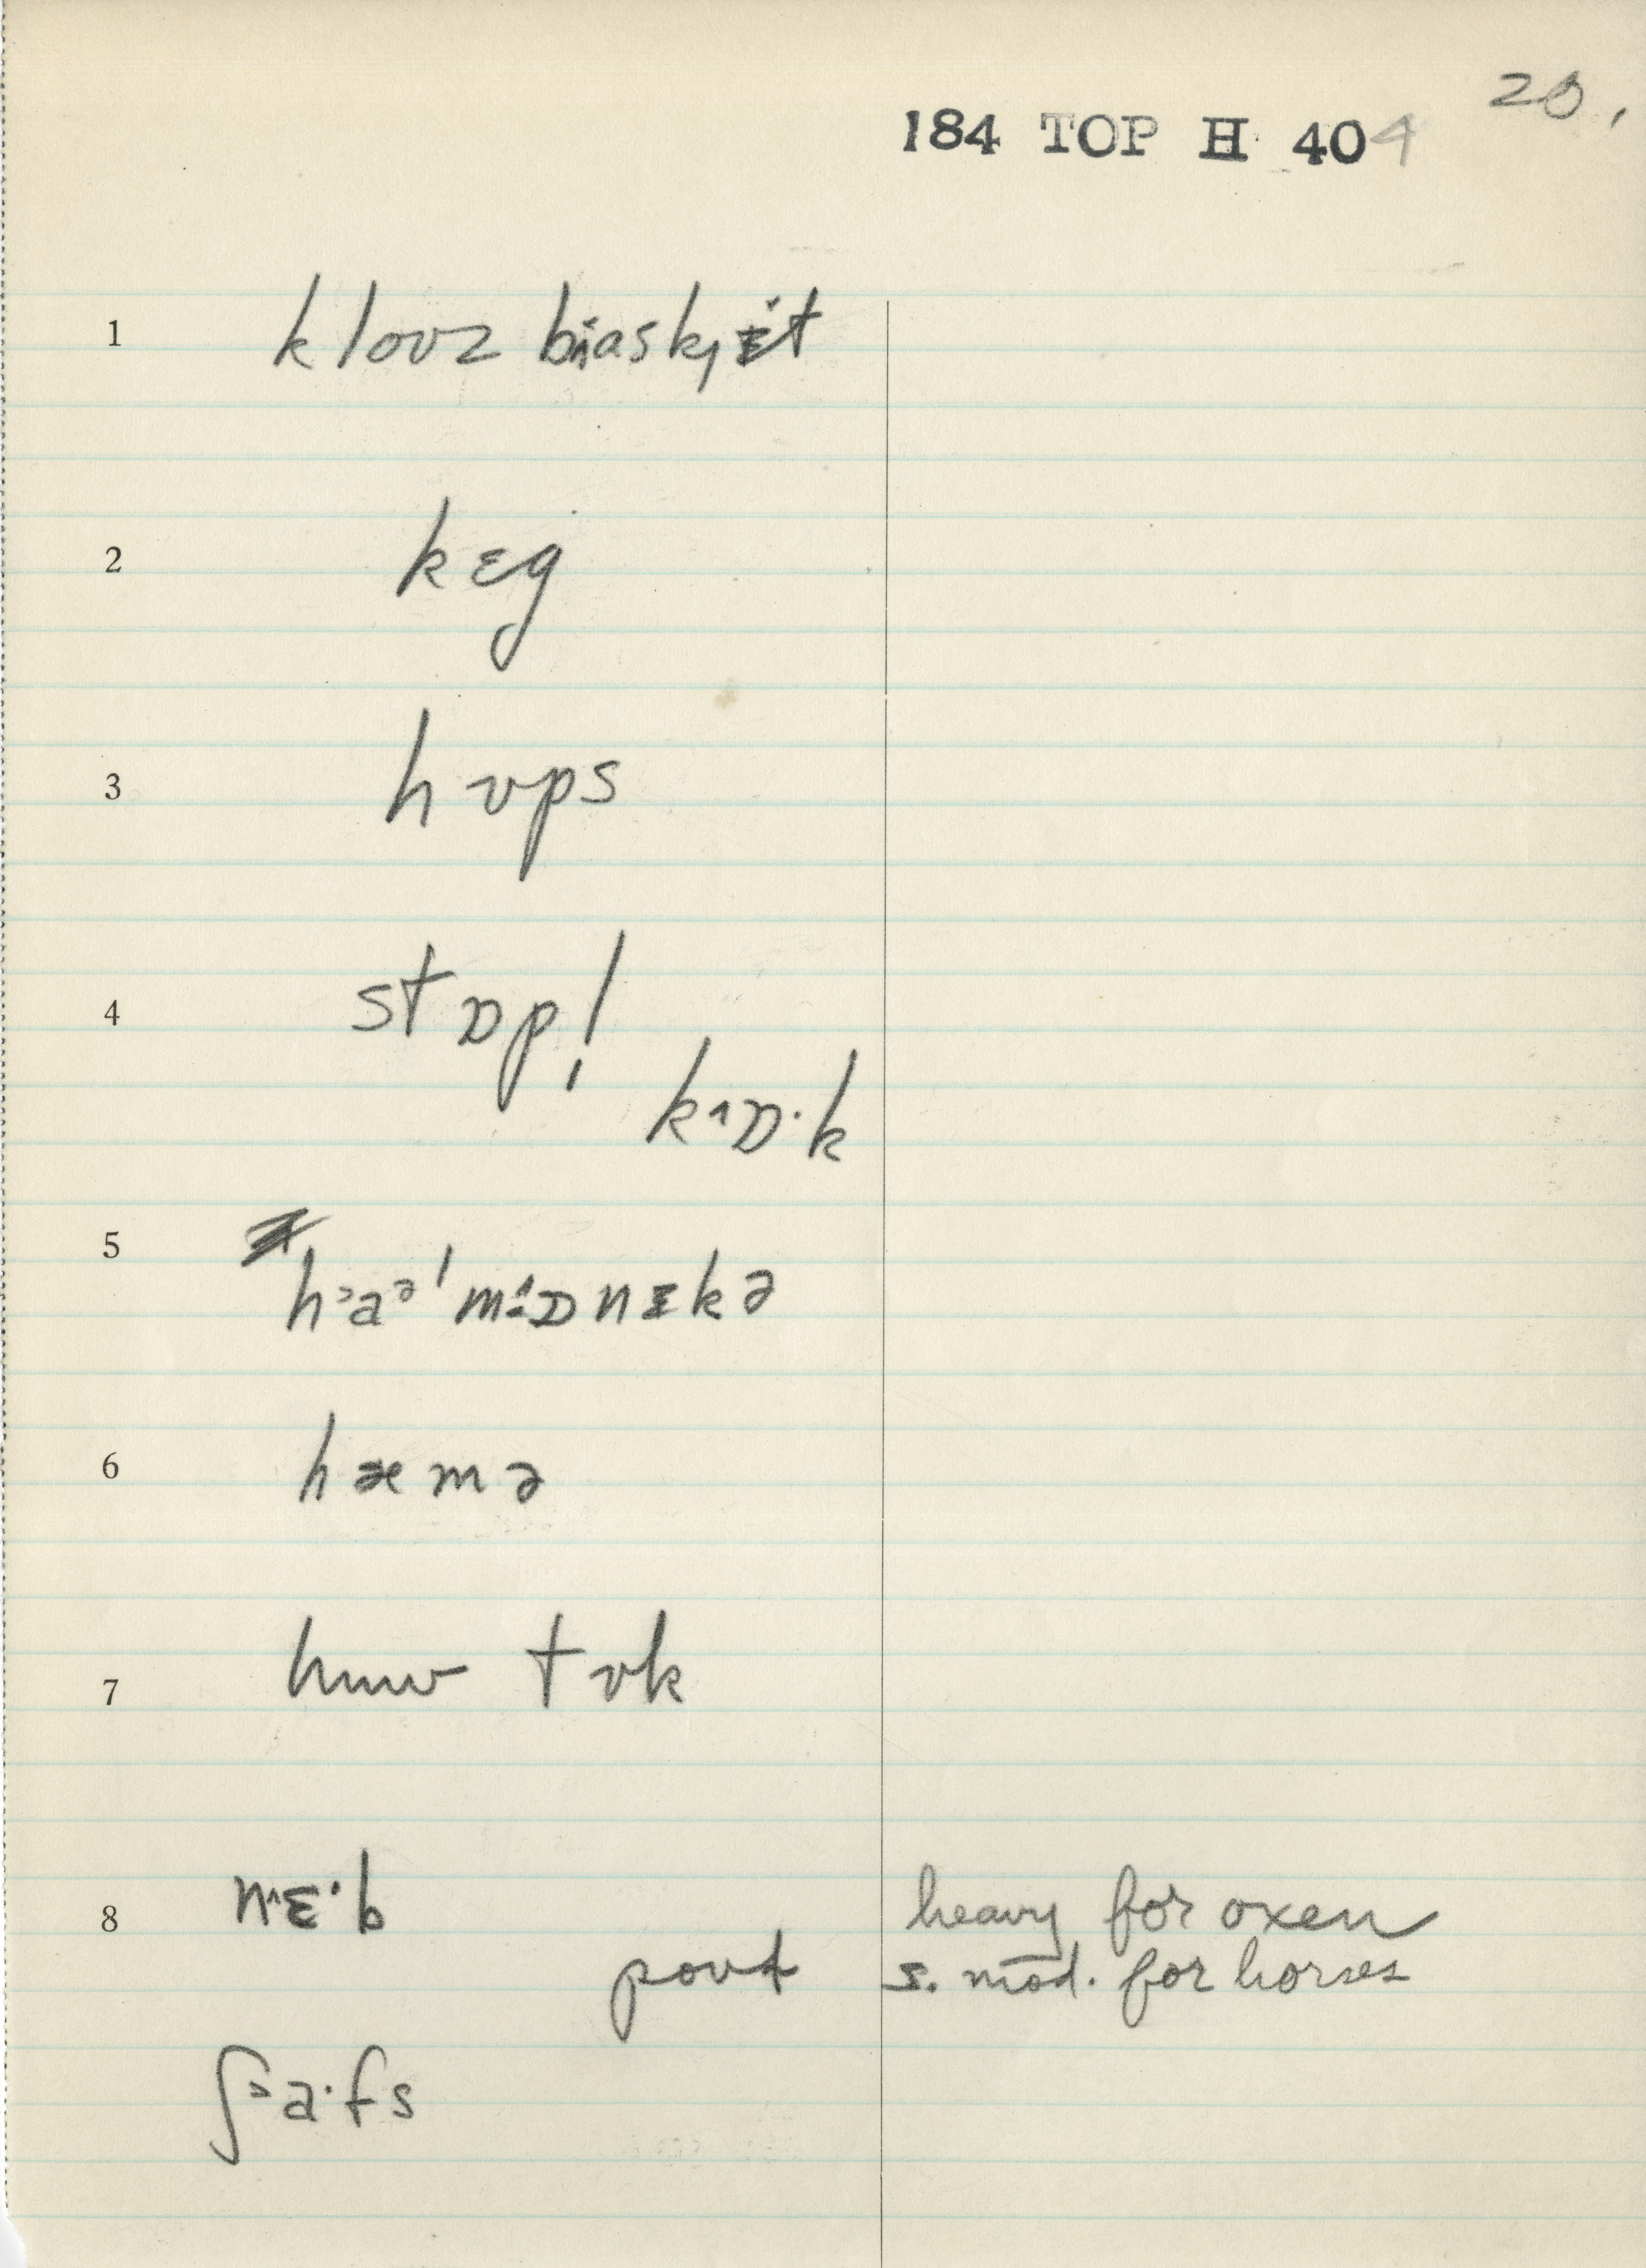 20.
184 TOP H 404
1 klouz bɪ̈askɪ̨̈t
2 kɛg
3 hʊps
4 stɒp!
k˄ɒ·k
5 h˃aᵊ'm˄ɒnɪkə
6 hæmə
7 hɯʊ tʊk
8 n˄ɛ·b heavy for oxen
poʊɫ s. mod. for horses
ʃ˃a·fs